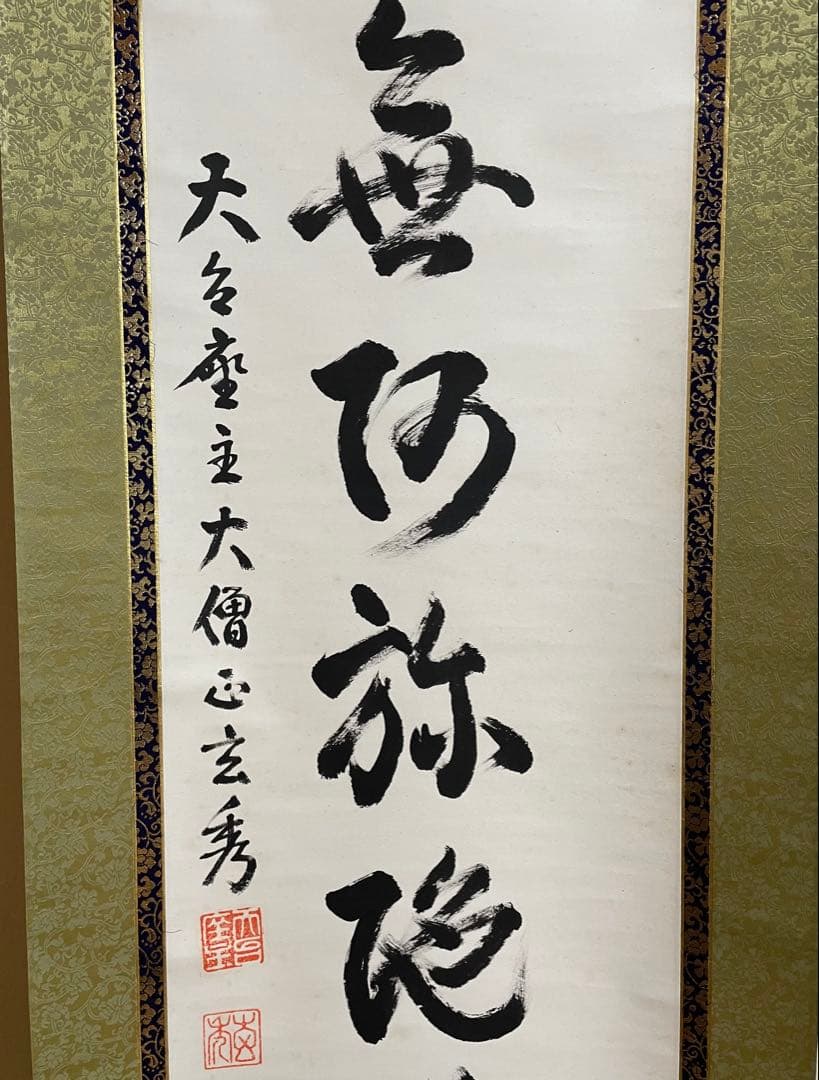 無阿弥陀
天台座主大僧正玄秀